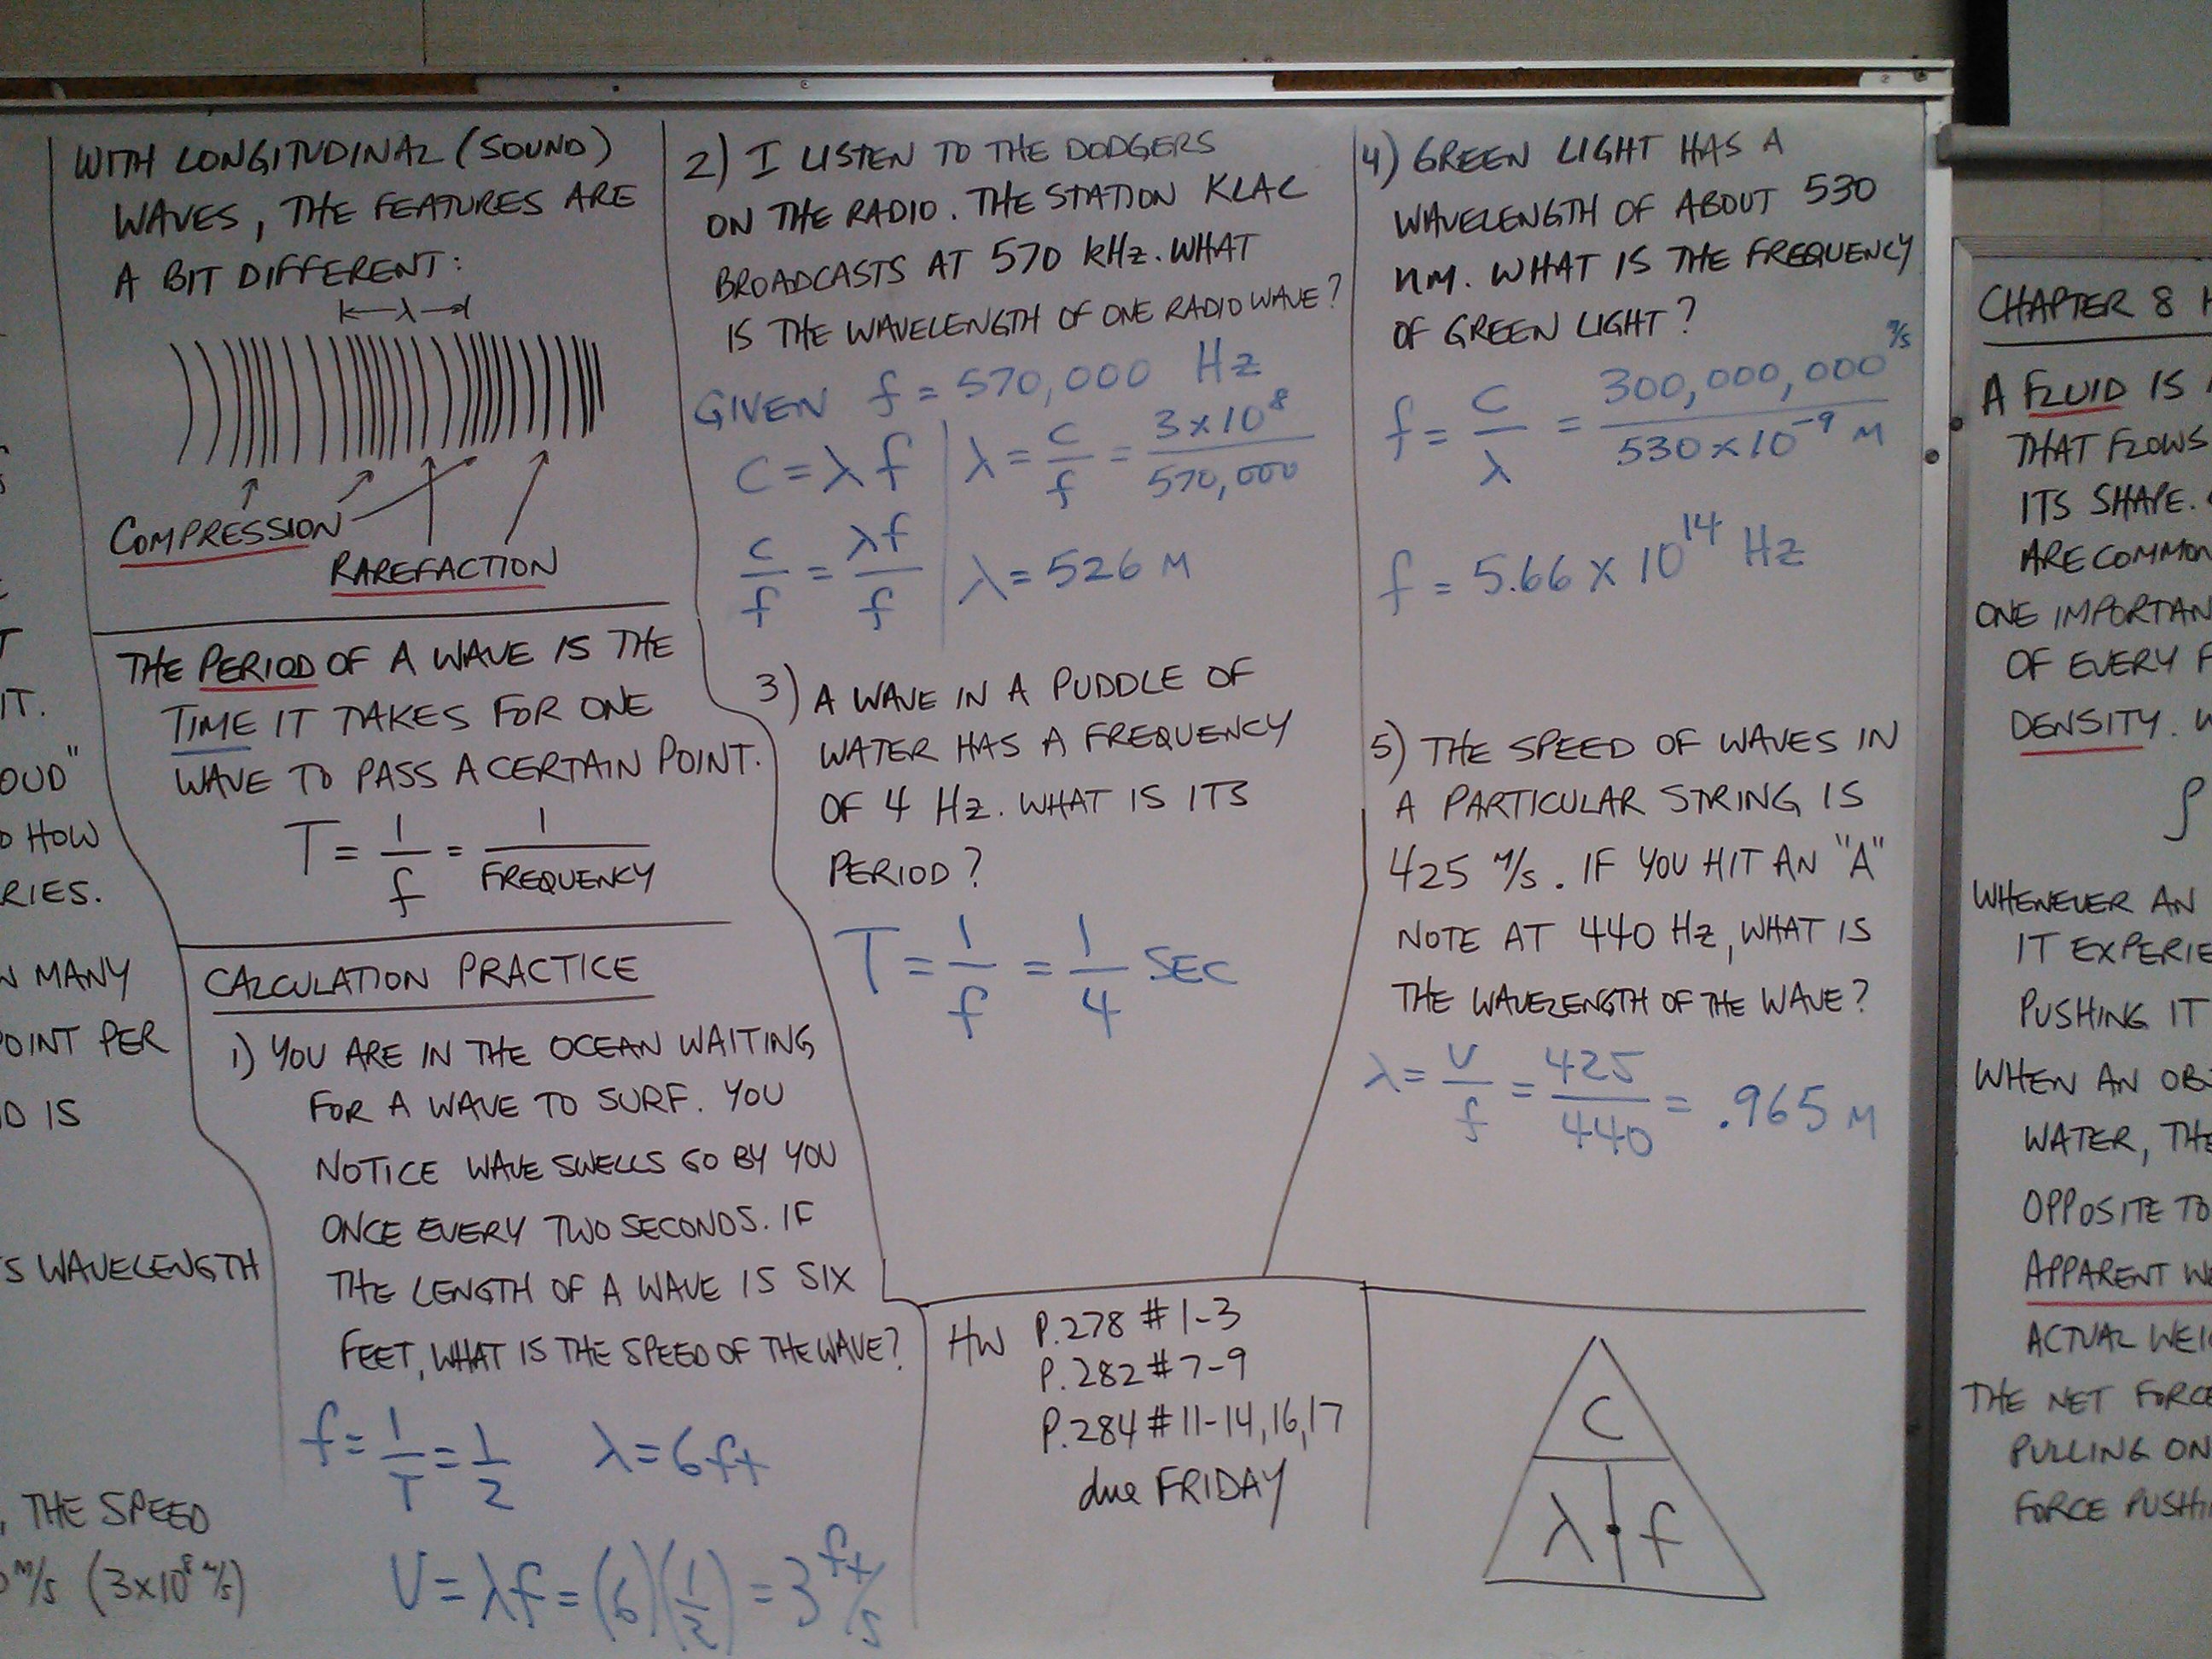 WITH LONGITUDINAL (SOUND)
WAVES, THE FEATURES ARE
A BIT DIFFERENT:
λ
COMPRESSION
RAREFACTION
THE PERIOD OF A WAVE IS THE
TIME IT TAKES FOR ONE
WAVE TO PASS A CERTAIN POINT.
T = 1/f = 1/FREQUENCY
CALCULATION PRACTICE
1) YOU ARE IN THE OCEAN WAITING
FOR A WAVE TO SURF. YOU
NOTICE WAVE SWELLS GO BY YOU
ONCE EVERY TWO SECONDS. IF
THE LENGTH OF A WAVE IS SIX
FEET, WHAT IS THE SPEED OF THE WAVE?
f = 1/T = 1/2 λ = 6 ft
V = λf = (6)(1/2) = 3 ft/s
2) I LISTEN TO THE DODGERS
ON THE RADIO. THE STATION KLAC
BROADCASTS AT 570 kHz. WHAT
IS THE WAVELENGTH OF ONE RADIO WAVE?
GIVEN f = 570,000 Hz
C = λf
c/f = λf/f
λ = c/f = 3×10⁸/570,000
λ = 526 M
3) A WAVE IN A PUDDLE OF
WATER HAS A FREQUENCY
OF 4 Hz. WHAT IS ITS
PERIOD?
T = 1/f = 1/4 SEC
HW P.278 # 1-3
P.282 # 7-9
P.284 # 11-14, 16, 17
due FRIDAY
4) GREEN LIGHT HAS A
WAVELENGTH OF ABOUT 530
nM. WHAT IS THE FREQUENCY
OF GREEN LIGHT?
f = C/λ = 300,000,000 M/S/530×10⁻⁹ M
f = 5.66 × 10¹⁴ Hz
5) THE SPEED OF WAVES IN
A PARTICULAR STRING IS
425 M/S. IF YOU HIT AN "A"
NOTE AT 440 Hz, WHAT IS
THE WAVELENGTH OF THE WAVE?
λ = V/f = 425/440 = .965 M
C
λ · f
IT.
OUD"
HOW
RIES.
MANY
POINT PER
IS
WAVELENGTH
, THE SPEED
M/S (3×10⁸ M/S)
CHAPTER 8
A FLUID IS
THAT FLOWS
ITS SHAPE.
ARE COMMON
ONE IMPORTAN
OF EVERY F
DENSITY. W
ρ
WHENEVER AN
IT EXPERIE
PUSHING IT
WHEN AN OBJ
WATER, THE
OPPOSITE TO
APPARENT WE
ACTUAL WEIG
THE NET FORCE
PULLING ON
FORCE PUSHI